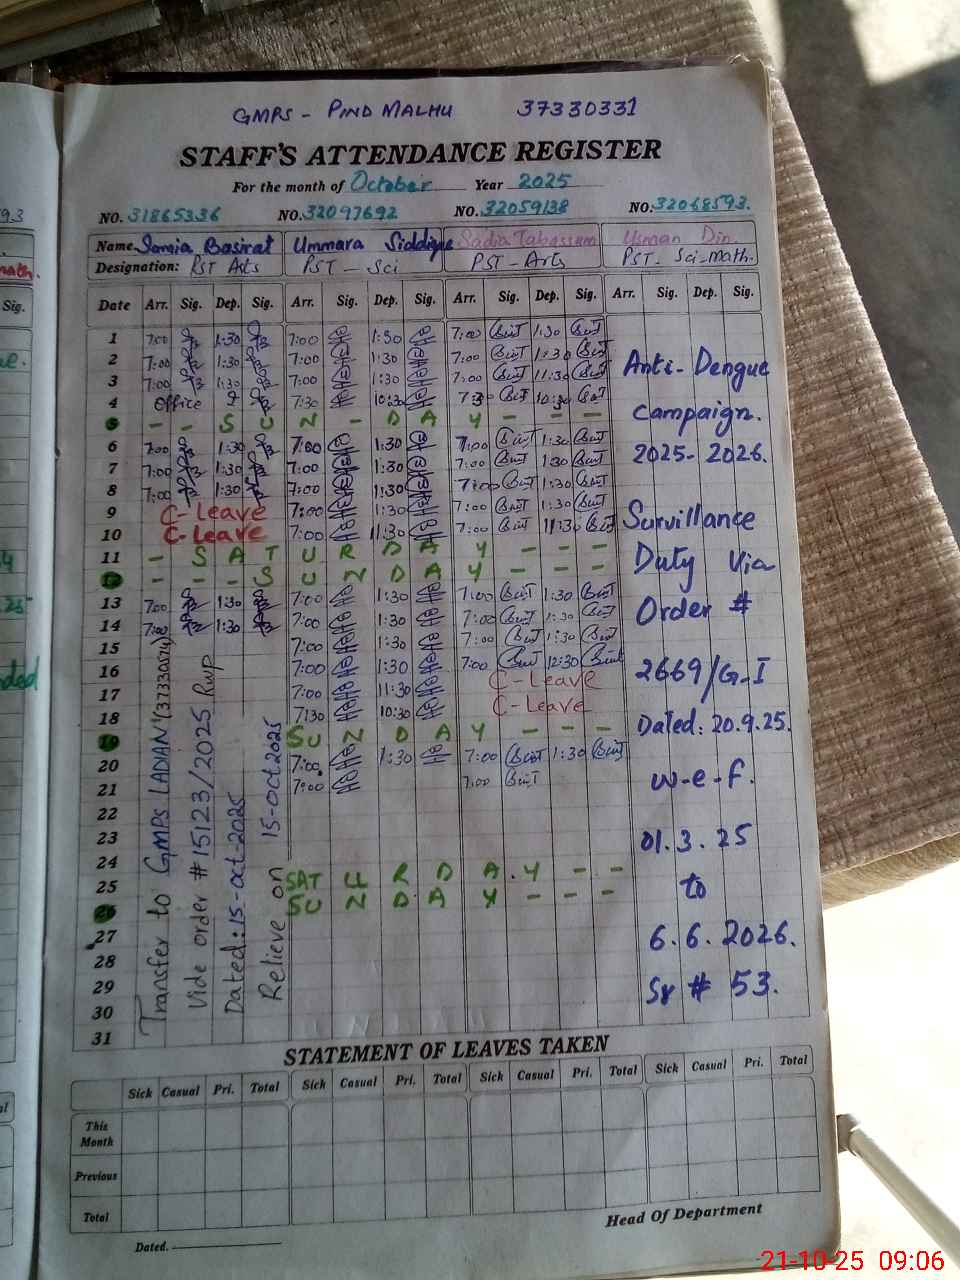 GMPS - PIND MALHU 37330331
STAFF'S ATTENDANCE REGISTER
For the month of October Year 2025
NO. 31865336 NO. 32097692 NO. 32059138 NO. 32068593.
Name. Samia Basirat Ummara Siddique Sadia Tabassum Usman Din.
Designation: PST Arts PST - Sci PST - Arts PST - Sci-math.
Date Arr. Sig. Dep. Sig. Arr. Sig. Dep. Sig. Arr. Sig. Dep. Sig. Arr. Sig. Dep. Sig.
1 7:00 1:30 7:00 1:30 7:00 1:30
2 7:00 1:30 7:00 1:30 7:00 1:30
3 7:00 1:30 7:00 1:30 7:00 11:30
4 Office 7:30 10:30 7:30 10:30
5 - - S U N - D A Y - - -
6 7:00 1:30 7:00 1:30 7:00 1:30
7 7:00 1:30 7:00 1:30 7:00 1:30
8 7:00 1:30 7:00 1:30 7:00 1:30
9 C-Leave 7:00 1:30 7:00 1:30
10 C-Leave 7:00 11:30 7:00 11:30
11 - S A T U R D A Y - - -
12 - - - S U N D A Y - - -
13 7:00 1:30 7:00 1:30 7:00 1:30
14 7:00 1:30 7:00 1:30 7:00 1:30
15 7:00 1:30 7:00 1:30
16 7:00 1:30 7:00 12:30
17 7:00 11:30 C-Leave
18 7:30 10:30 C-Leave
19 SU N D A Y - - -
20 7:00 1:30 7:00 1:30
21 7:00 7:00
22
23
24
25 SAT U R D A Y - -
26 SU N D A Y - - -
27
28
29
30
31
Transfer to GMPS LADIAN (37330514)
Vide order #15123/2025 RWP
Dated: 15-oct-2025
Relieve on 15-oct2025
Anti-Dengue
Campaign.
2025-2026.
Survillance
Duty Via
Order #
2669/G-I
Dated: 20.9.25.
w-e-f.
01.3.25
to
6.6.2026.
Sr # 53.
STATEMENT OF LEAVES TAKEN
Sick Casual Pri. Total Sick Casual Pri. Total Sick Casual Pri. Total Sick Casual Pri. Total
This Month
Previous
Total
Head Of Department
Dated.
21-10-25 09:06